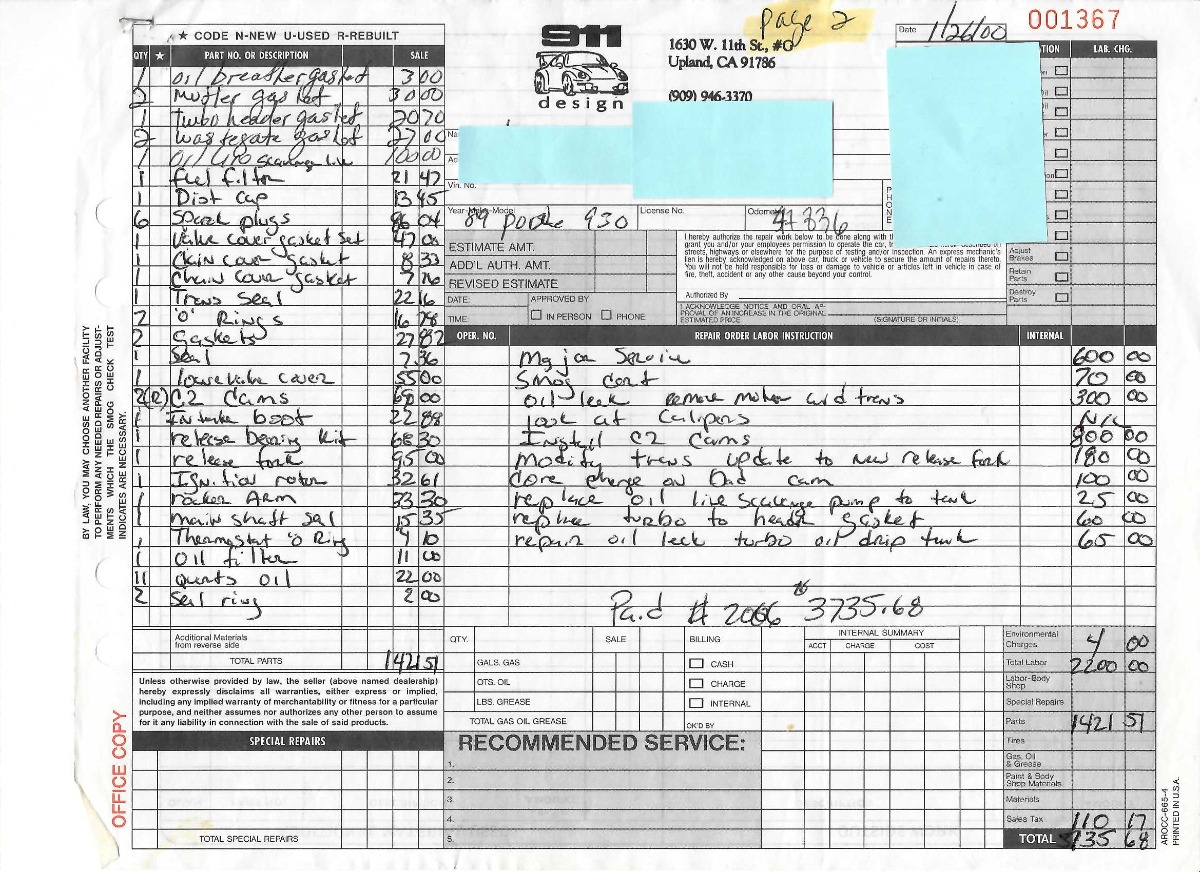 page 2
★ CODE N-NEW U-USED R-REBUILT
911
design
1630 W. 11th St., #G
Upland, CA 91786
(909) 946-3370
Date 1/26/00
001367
QTY ★ PART NO. OR DESCRIPTION SALE
LAB. CHG.
1 oil breather gasket 3 00
2 Mufler gasket 30 00
1 turbo header gasket 20 70
2 wastegate gasket 27 00
1 Oil line scavenge line 100 00
1 fuel filter 21 47
1 Dist cap 13 45
6 Spark plugs 96 04
1 Valve cover gasket set 47 00
1 Chain cover gasket 8 33
1 Chain cover gasket 7 76
1 Trans Seal 22 16
2 'O' Rings 16 78
2 Gaskets 27 82
1 Seal 7 36
1 lower valve cover 55 00
2 (R) C2 Cams 00
1 Intake boot 22 88
1 release bearing kit 68 30
1 release fork 95 00
1 Ignition rotor 32 61
1 rocker ARM 33 30
1 main shaft seal 15 35
1 Thermostat 'O' Ring 4 10
1 Oil filter 11 00
11 quarts oil 22 00
2 Seal ring 2 00
Additional Materials from reverse side
TOTAL PARTS 1421 51
Vin. No.
Year-Make-Model 89 porshe 930
License No.
ESTIMATE AMT.
ADD'L AUTH. AMT.
REVISED ESTIMATE
DATE:
TIME:
APPROVED BY
IN PERSON PHONE
I hereby authorize the repair work below to be done along with th
grant you and/or your employees permission to operate the car,
streets, highways or elsewhere for the purpose of testing and/or inspection. An express mechanic's
lien is hereby acknowledged on above car, truck or vehicle to secure the amount of repairs thereto.
You will not be held responsible for loss or damage to vehicle or articles left in vehicle in case of
fire, theft, accident or any other cause beyond your control.
Authorized By
I ACKNOWLEDGE NOTICE AND ORAL AP-
PROVAL OF AN INCREASE IN THE ORIGINAL
ESTIMATED PRICE.
(SIGNATURE OR INITIALS)
Adjust Brakes
Retain Parts
Destroy Parts
OPER. NO. REPAIR ORDER LABOR INSTRUCTION INTERNAL
Major Service 600 00
Smog cert 70 00
Oil leak remove motor and trans 300 00
look at Calipers N/C
Install C2 Cams 800 00
Modify trans update to new release fork 180 00
Core charge on Bad cam 100 00
replace oil line scavenge pump to tank 25 00
replace turbo to header gasket 60 00
repair oil leak turbo oil drip tank 65 00
Paid # 2066 3735.68
QTY. SALE
GALS. GAS
QTS. OIL
LBS. GREASE
TOTAL GAS OIL GREASE
BILLING
CASH
CHARGE
INTERNAL
OK'D BY
INTERNAL SUMMARY
ACCT CHARGE COST
Environmental Charges 4 00
Total Labor 2200 00
Labor-Body Shop
Special Repairs
Parts 1421 51
Tires
Gas, Oil & Grease
Paint & Body Shop Materials
Materials
Sales Tax 110 17
TOTAL 3735 68
Unless otherwise provided by law, the seller (above named dealership)
hereby expressly disclaims all warranties, either express or implied,
including any implied warranty of merchantability or fitness for a particular
purpose, and neither assumes nor authorizes any other person to assume
for it any liability in connection with the sale of said products.
SPECIAL REPAIRS
TOTAL SPECIAL REPAIRS
RECOMMENDED SERVICE:
1.
2.
3.
4.
5.
BY LAW, YOU MAY CHOOSE ANOTHER FACILITY
TO PERFORM ANY NEEDED REPAIRS OR ADJUST-
MENTS WHICH THE SMOG CHECK TEST
INDICATES ARE NECESSARY.
OFFICE COPY
AROCC-665-4
PRINTED IN U.S.A.